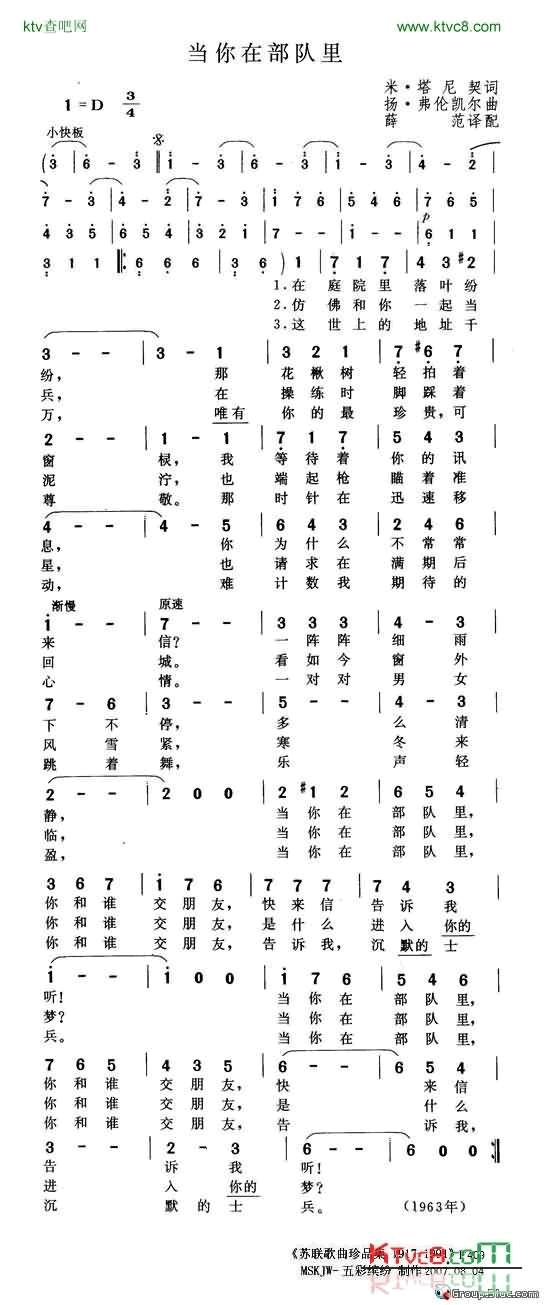 ktv查吧网
www.ktvc8.com
当你在部队里
1=D 3/4
米·塔尼契词
扬·弗伦凯尔曲
薛范译配
小快板
(3 | 6 - 3 | 1 - 3 | 6 - 3 | 4 - 2 |
7 - 3 | 4 - 2 | 7 - 3 | 1 7 6 | 5 4 6 | 7 6 5 |
p
4 3 5 | 6 5 4 | 3 2 1 | 7 - - | 1 - - | 6 1 1 |
3 1 1 |: 6 6 6 | 3 6 6 | 6 - ) 1 | 7 1 7 | 4 3 #2 |
1.在 庭院里 落叶纷
2.仿 佛和你 一起当
3.这 世上的 地址千
3 - - | 3 - 1 | 3 2 1 | 7 #6 7 |
纷, 那 花楸树 轻拍着
兵, 在 操练时 脚踩着
万, 唯有 你的最 珍贵,可
2 - - | 1 - 1 | 7 1 7 | 5 4 3 |
窗 棂,我 等待着 你的讯
泥 泞,也 端起枪 瞄着准
尊 敬。那 时针在 迅速移
4 - - | 4 - 5 | 6 4 3 | 2 4 6 |
息, 你 为什么 不常常
星, 也 请求在 满期后
动, 难 计数我 期待的
渐慢 原速
1 - - | 7 - - | 3 3 3 | 4 - 3 |
来 信? 一阵阵 细雨
回 城。 看如今 窗外
心 情。 一对对 男女
7 - 6 | 3 - - | 5 - - | 4 - 3 |
下不停, 多 么清
风雪紧, 寒 冬来
跳着舞, 乐 声轻
2 - - | 2 0 0 | 2 #1 2 | 6 5 4 |
静, 当你在 部队里,
临, 当你在 部队里,
盈, 当你在 部队里,
3 6 7 | 1 7 6 | 7 7 7 | 7 4 3 |
你和谁 交朋友, 快来信 告诉我
你和谁 交朋友, 是什么 进入你的
你和谁 交朋友, 告诉我, 沉默的士
1 - - | 1 0 0 | 1 7 6 | 5 4 6 |
听! 当你在 部队里,
梦? 当你在 部队里,
兵。 当你在 部队里,
7 6 5 | 4 3 5 | 6 - - | 6 5 4 |
你和谁 交朋友, 快 来信
你和谁 交朋友, 是 什么
你和谁 交朋友, 告 诉我,
3 - - | 2 - 3 | 6 - - | 6 0 0 :|
告 诉我 听!
进 入你的 梦?
沉 默的士 兵。 (1963年)
《苏联歌曲珍品集 1917-1991》
MSKJW-五彩缤纷 制作 2007.08.04
KTvc8.com